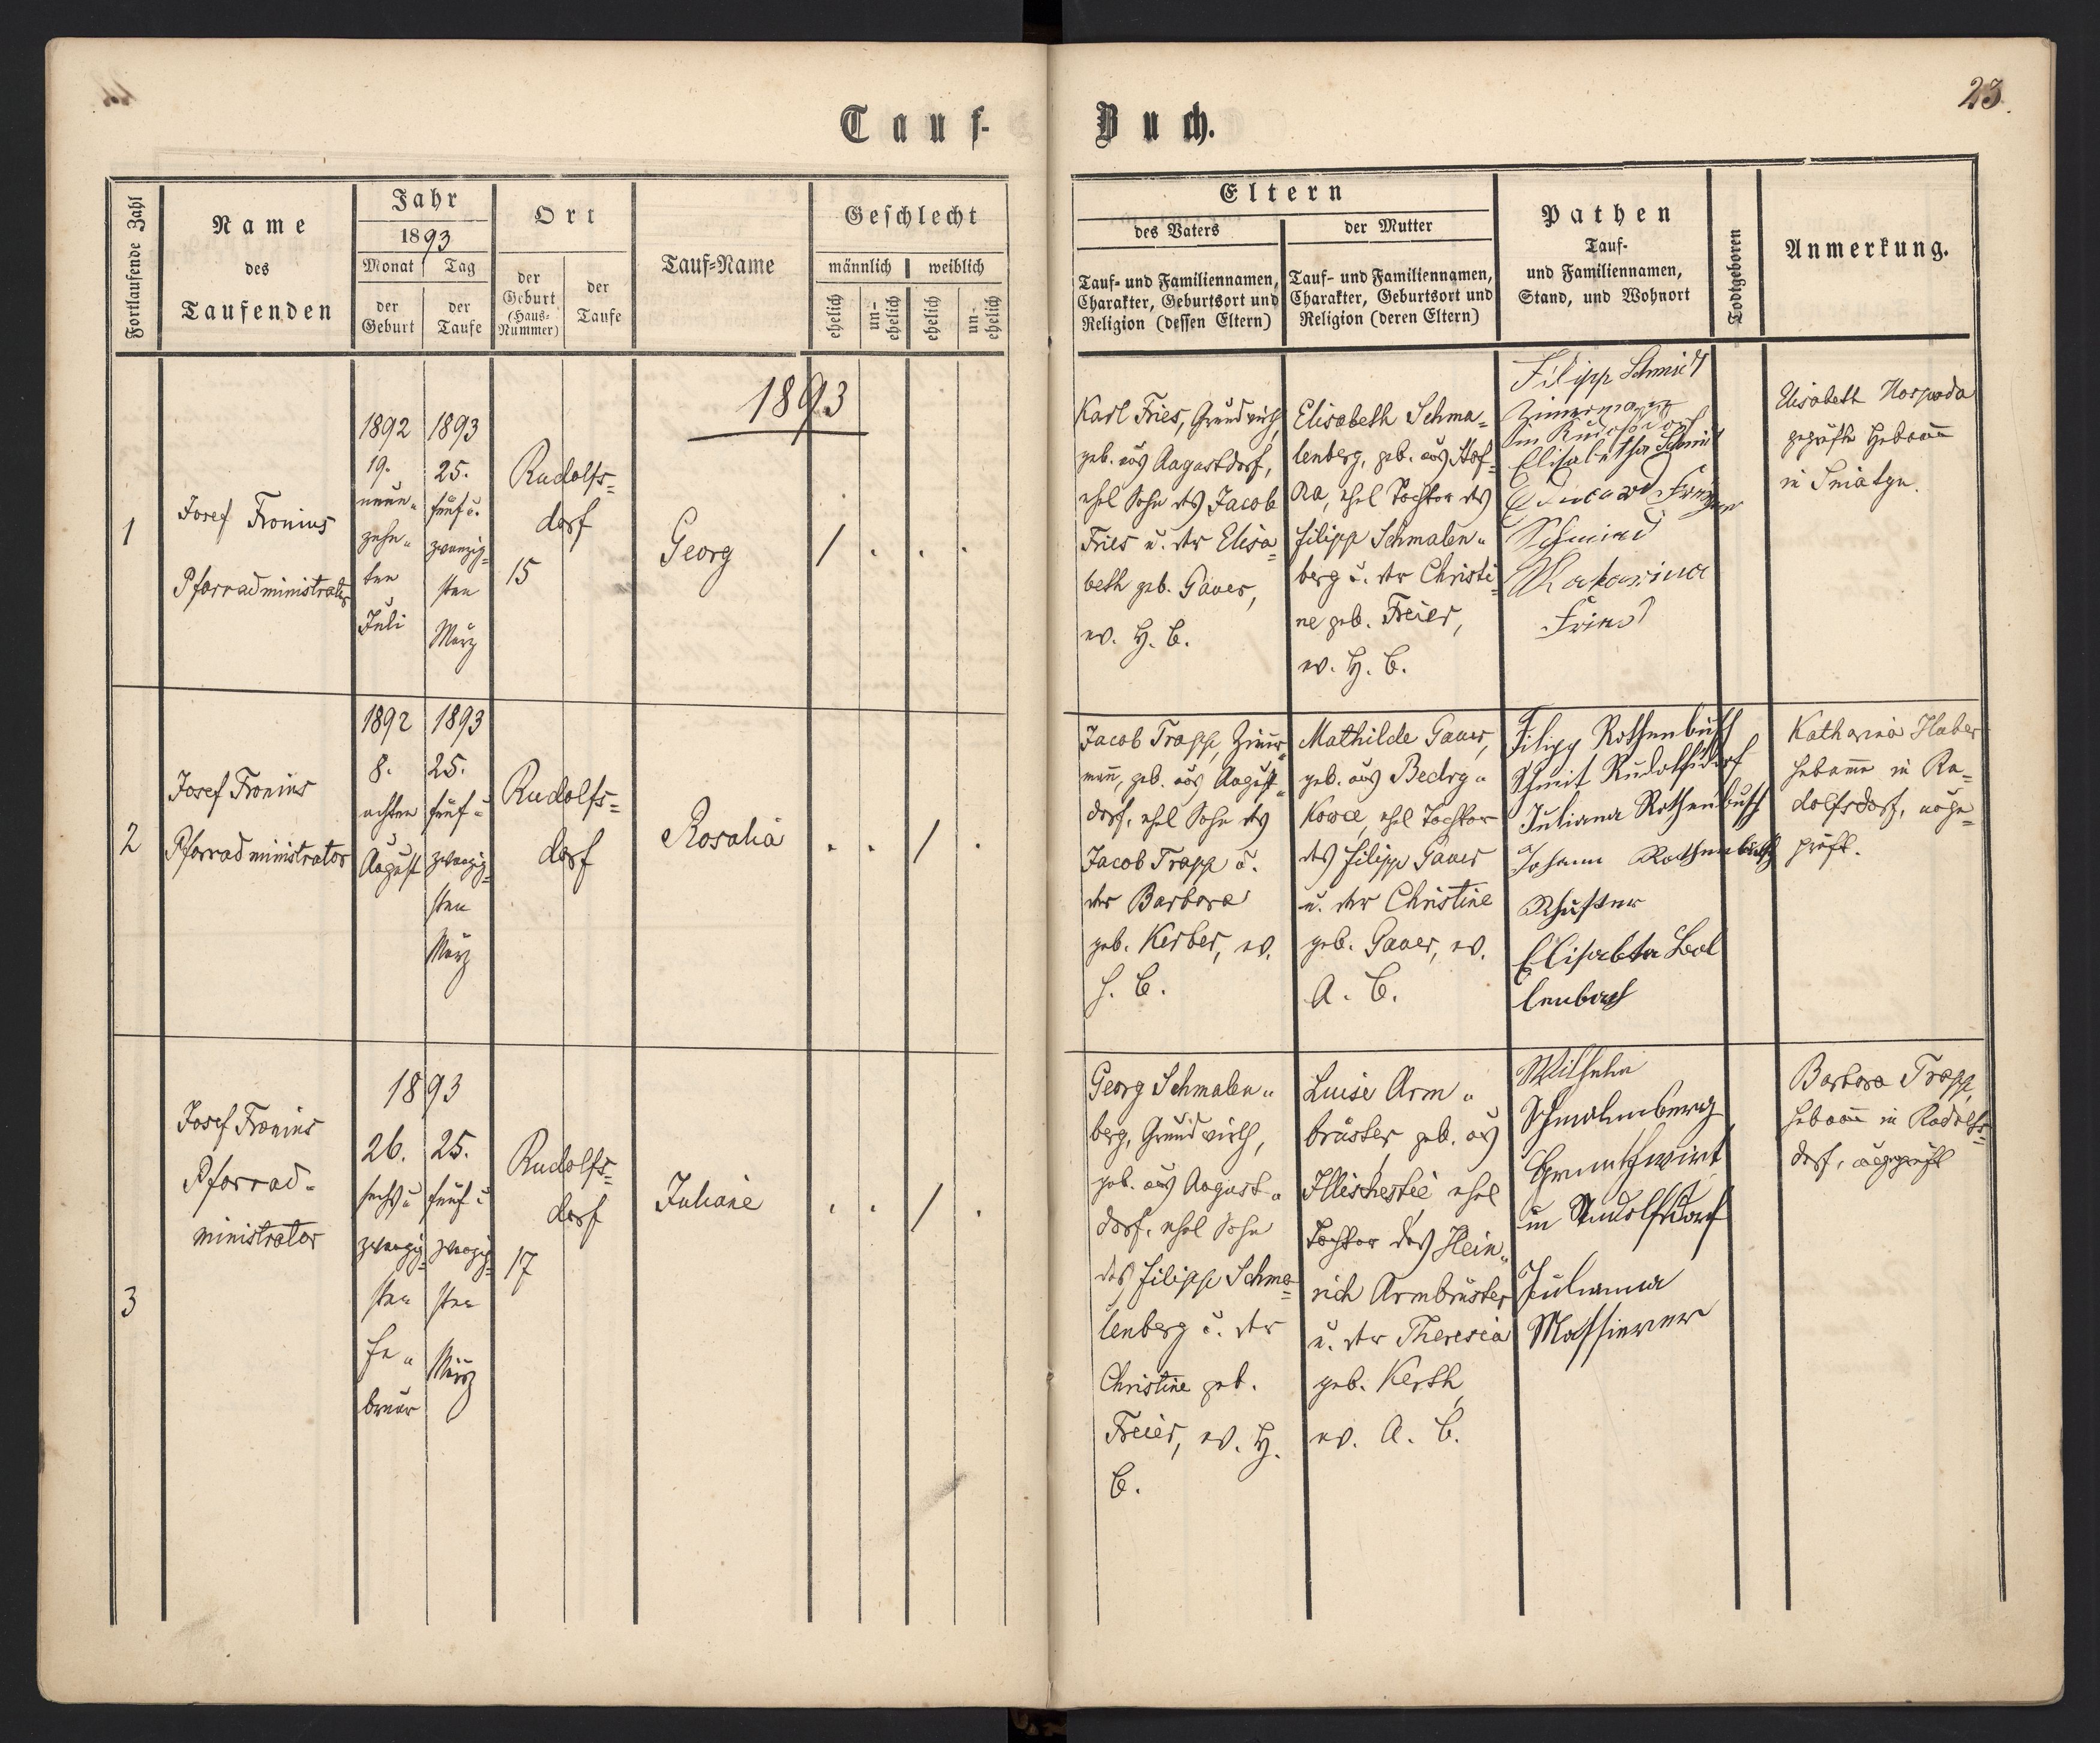 23.
Tauf-
Buch.
Fortlaufende Zahl
Name
des
Taufenden
Jahr
1893
Monat
Tag
der
Geburt
der
Taufe
Ort
der
Geburt
(Haus-
Nummer)
der
Taufe
Tauf-Name
Geschlecht
männlich
weiblich
ehelich
un-
ehelich
ehelich
un-
ehelich
Eltern
des Vaters
der Mutter
Tauf- und Familiennamen,
Charakter, Geburtsort und
Religion (dessen Eltern)
Tauf- und Familiennamen,
Charakter, Geburtsort und
Religion (deren Eltern)
Pathen
Tauf-
und Familiennamen,
Stand, und Wohnort
Todtgeboren
Anmerkung.
1893
1
Josef Fronius
Pfarradministrator
1892
19.
neun-
zehn-
ten
Juli
1893
25.
fünf u.
zwanzig-
sten
März
Rudolfs-
dorf
15
Georg
/ . . .
Karl Fries, Grundwirth,
geb. aus Augustdorf,
ehel Sohn des Jacob
Fries u. der Elisa-
beth geb. Gauer,
ev. H. B.
Elisabeth Schma-
lenberg, geb. aus
ehel Tochter des
Filipp Schmalen-
berg u. der Christi-
ne geb. Freier,
ev. H. B.
Filipp Schmidt
Zimermann
in Rudolfsdorf
Elisabetha Schmidt
Schmied
Katarina
Elisabeth Hospoda
geprüfte Hebamme
in Sniatyn.
2
Josef Fronius
Pfarradministrator
1892
8.
achten
August
1893
25.
fünf u
zwanzig-
sten
März
Rudolfs-
dorf
Rosalia
. . / .
Jacob Trapp, Zimer-
mann, geb. aus August-
dorf, ehel Sohn des
Jacob Trapp u.
der Barbara
geb. Kerber, ev.
H. B.
Mathilde Gauer,
geb. aus Bedry-
kowce, ehel Tochter
des Filipp Gauer
u. der Christine
geb. Gauer, ev.
A. B.
Filipp Rothenbusch
Schmit Rudolfsdorf
Juliana Rothenbusch
Johann Rothenbusch
Schuster
Elisabta Bol
lenbach
Katharina Huber
Hebamme in Ru-
dolfsdorf, unge-
prüft.
3
Josef Fronius
Pfarrad-
ministrator
1893
26.
sechs u
zwanzig-
sten
Fe-
bruar
25.
fünf u
zwanzig-
sten
März
Rudolfs-
dorf
17
Juliane
. . / .
Georg Schmalen-
berg, Grundwirth,
geb. aus August-
dorf, ehel Sohn
des Filipp Schma-
lenberg u. der
Christine geb.
Freier, ev. H.
B.
Luise Arm-
brüster, geb. aus
Illischestie ehel
Tochter des Hein-
rich Armbrüster
u. der Theresia
geb. Kerth,
ev. A. B.
Wilhelm
Schmalenberg
Grunthwirt
in Rudolfsdorf
Julianna
Barbara Trapp,
Hebamme in Rudolfs-
dorf, ungeprüft